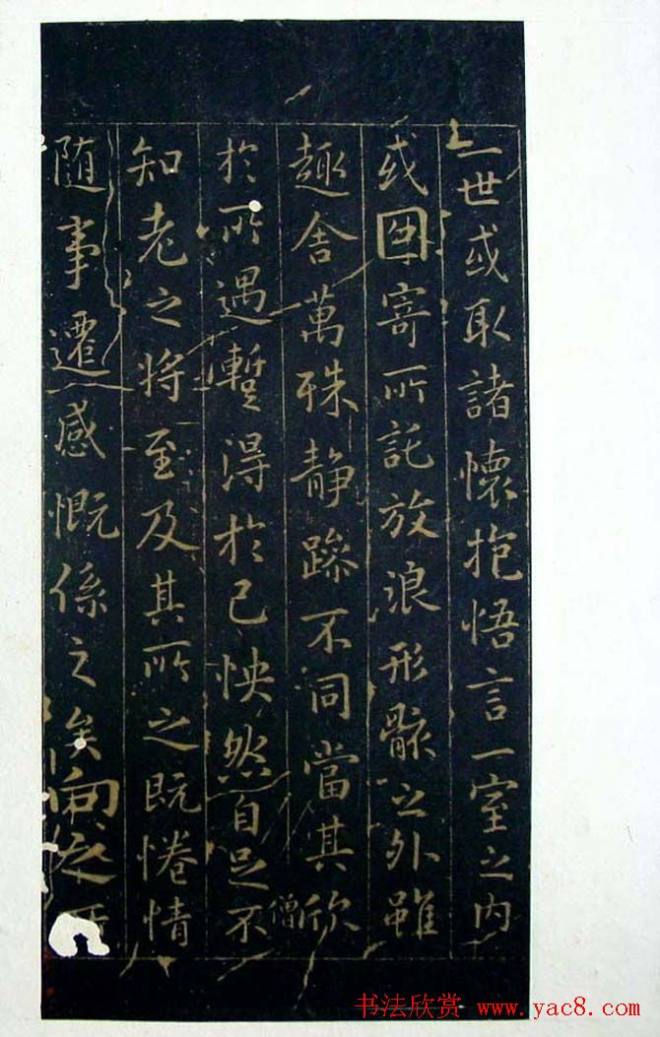 一世或取諸懷抱悟言一室之内
或因寄所託放浪形骸之外雖
趣舍萬殊静躁不同當其欣
僧
於所遇蹔得於己怏然自足不
知老之將至及其所之既惓情
随事遷感慨係之矣向之所
书法欣赏 www.yac8.com